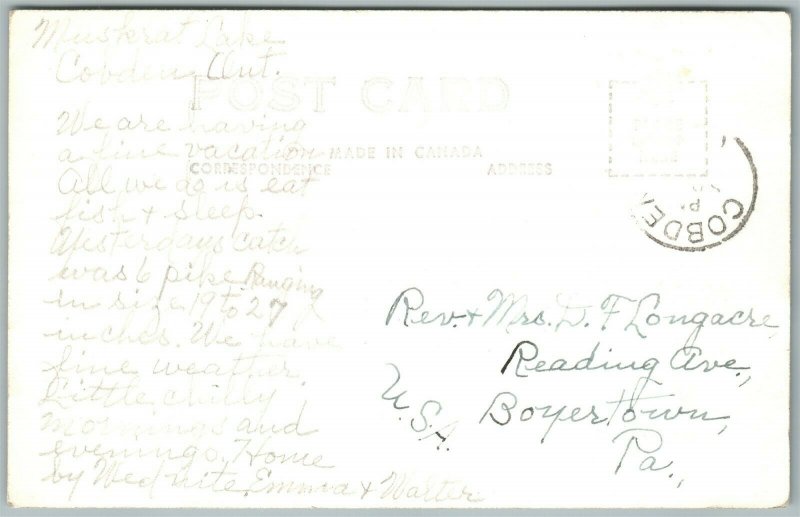 Muskrat Lake
Cobden, Ont.
POST CARD
MADE IN CANADA
CORRESPONDENCE
ADDRESS
PLACE
STAMP
HERE
COBDEN
We are having
a fine vacation
All we do is eat
fish & sleep.
Yesterdays catch
was 6 pike Ranging
in size 19 to 27
inches. We have
fine weather.
Little chilly
mornings and
evenings. Home
by Wed nite. Emma & Walter
Rev. & Mrs. D. F Longacre,
Reading Ave.,
Boyertown,
Pa.,
U.S.A.